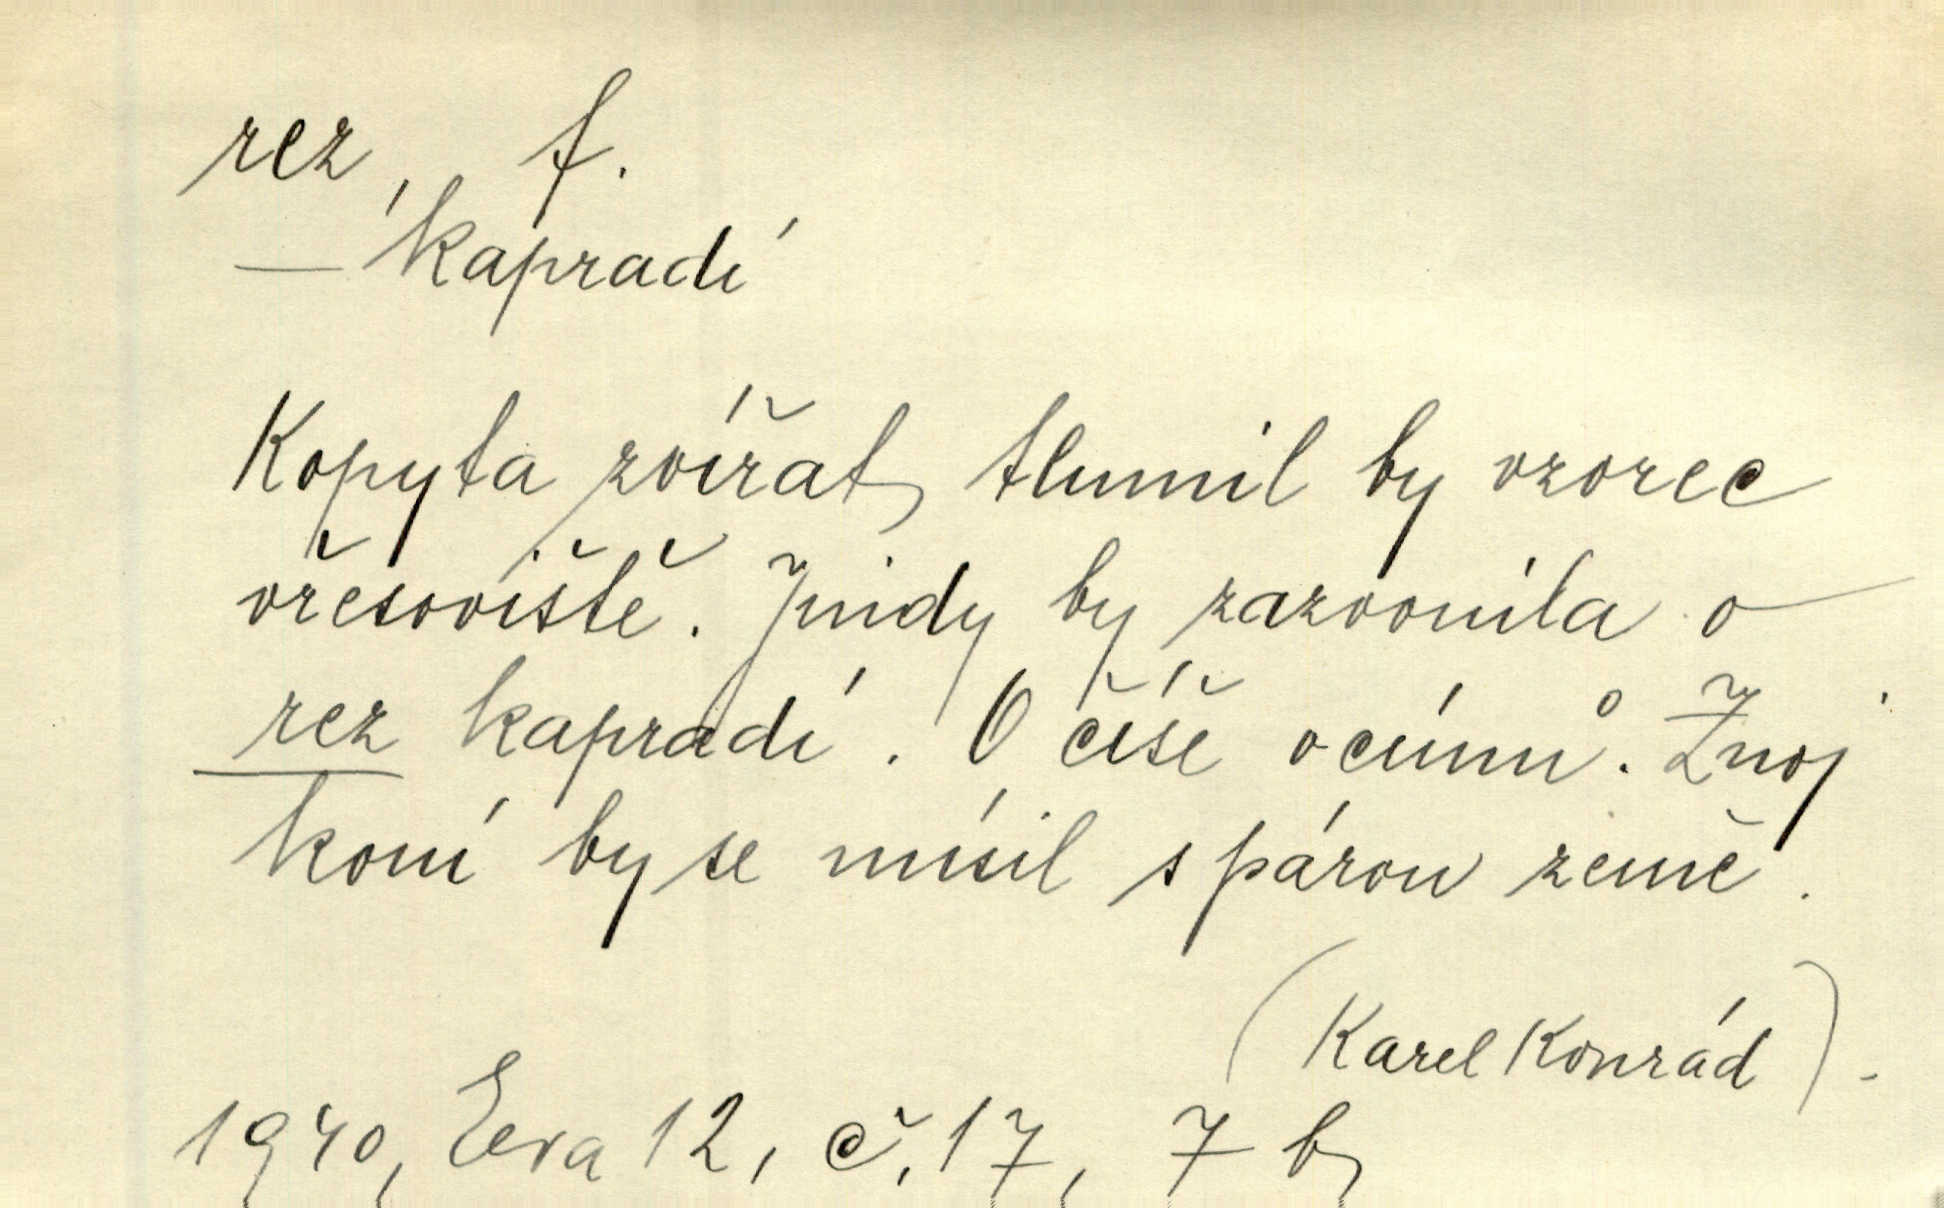 rez, f.
— kapradí
Kopyta zvířat tlumil by vzorec
vřesoviště. Jindy by zazvonila o
rez kapradí. O číše ocúnů. Znoj
koní by se mísil s párou země.
(Karel Konrád).
1940, Eva 12, č. 17, 7 b